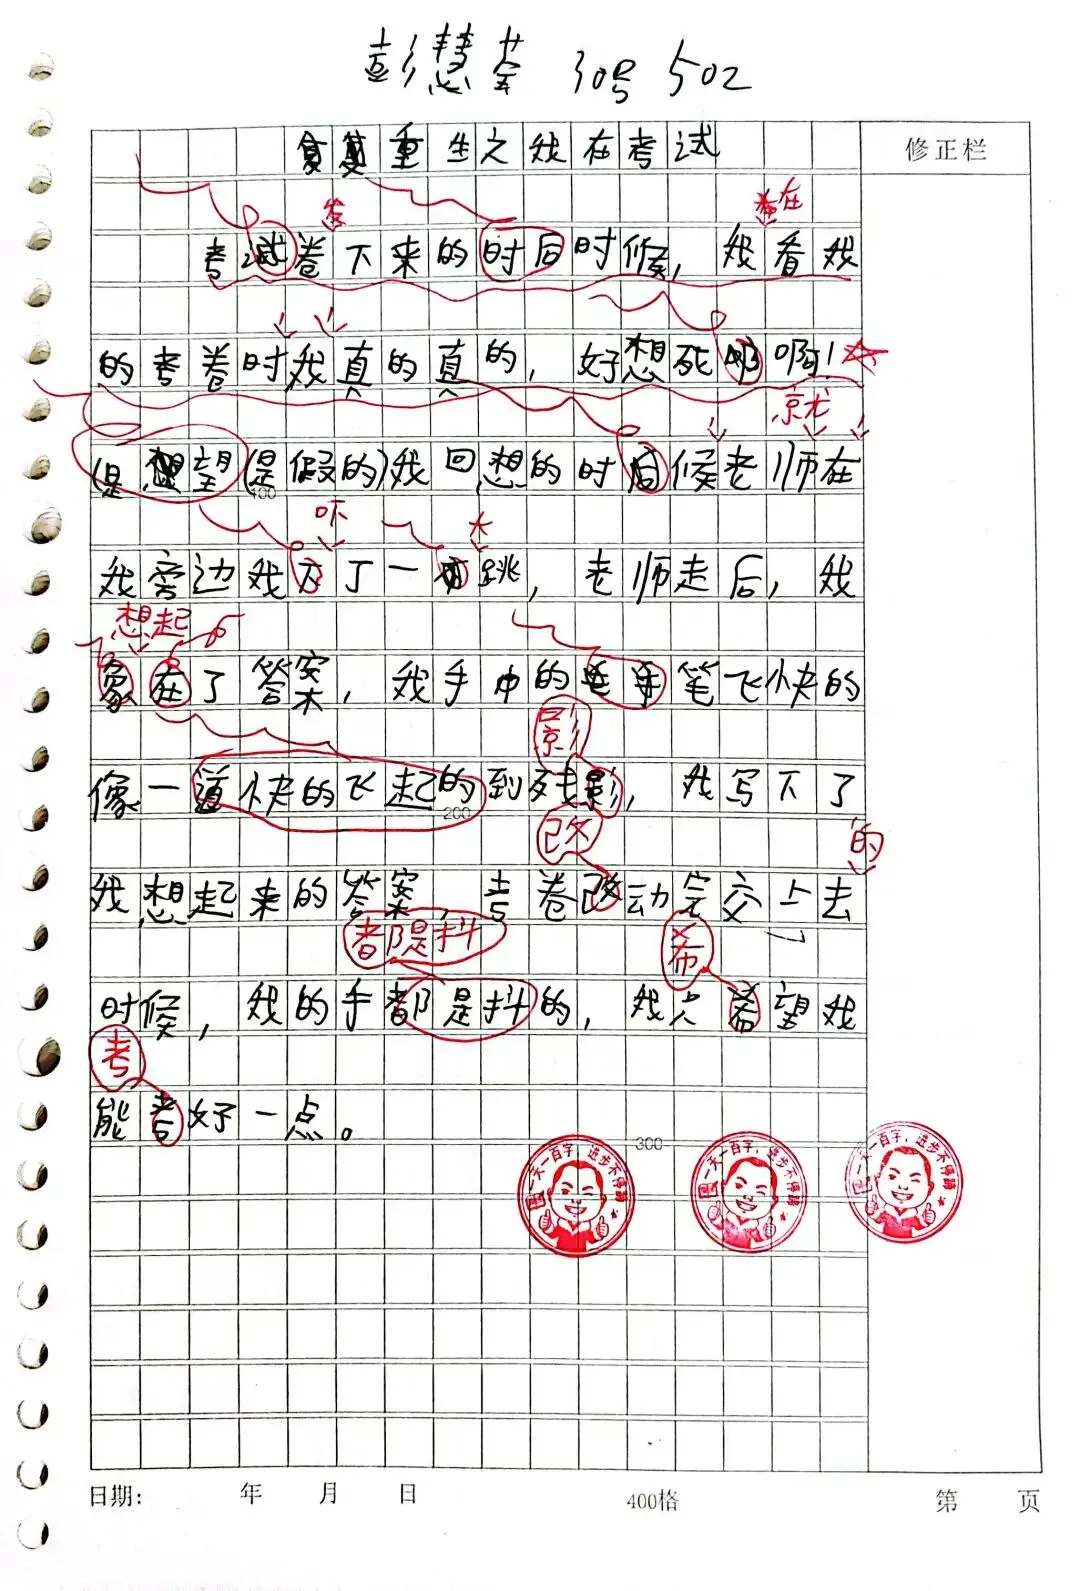 彭慧荃 30号 502
重生之我在考试
修正栏
发
在
考试卷下来的时后时候，我看我
的考卷时我真的真的，好想死啊！
就
(是想望(是假的)我回想的时后候老师在
吓
大
我旁边我下了一跳，老师走后，我
想起
象在了答案，我手中的手笔飞快的
影
像一道快的飞起的到残影，我写下了
改
的
我想起来的答案，考卷改动完交上去
都是抖
希
时候，我的手都是抖的，我只希望我
考
能考好一点。
100
200
300
一天一百字，进步不停蹄
一天一百字，进步不停蹄
一天一百字，进步不停蹄
日期： 年 月 日 400格 第 页